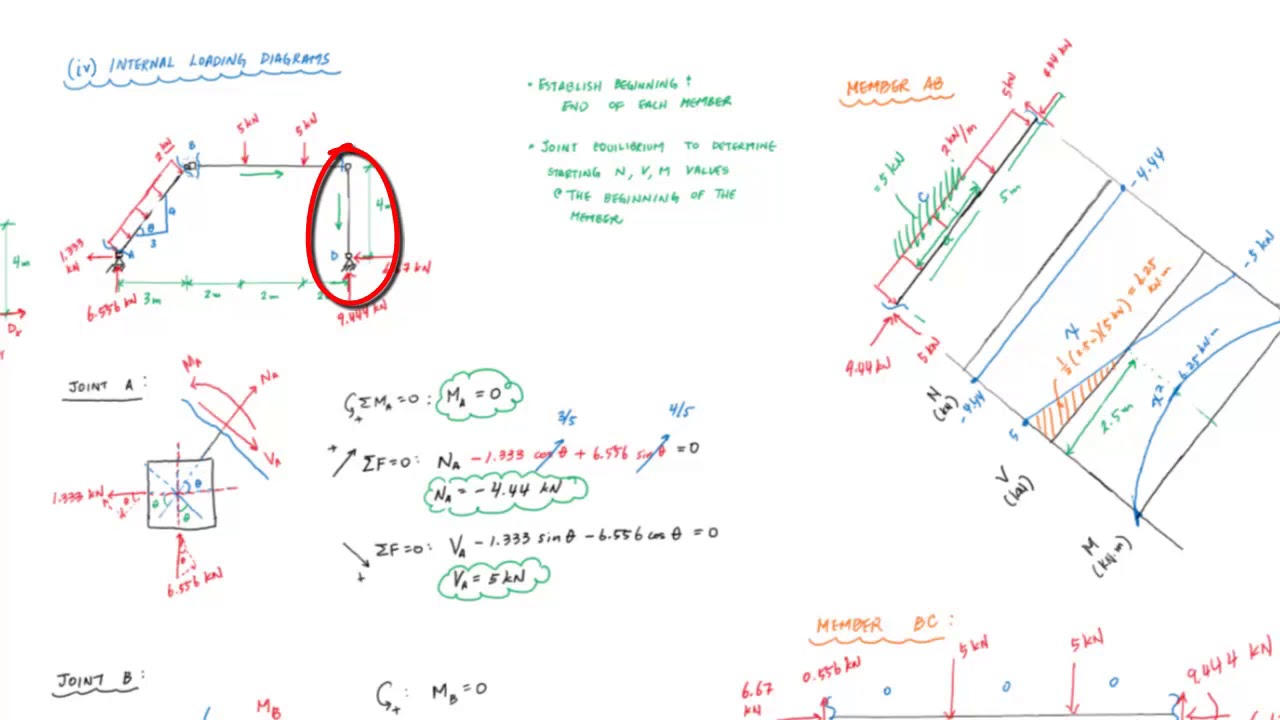 (iv) INTERNAL LOADING DIAGRAMS
• ESTABLISH BEGINNING &
END OF EACH MEMBER
• JOINT EQUILIBRIUM TO DETERMINE
STARTING N, V, M VALUES
@ THE BEGINNING OF THE
MEMBER
5 kN
5 kN
B
4
3
θ
A
D
4m
4m
1.333
kN
6.556 kN
3m
2m
2m
9.444 kN
Dx
JOINT A:
MA
NA
VA
1.333 kN
θ
θ
θ
6.556 kN
↺+ ΣMA = 0: MA = 0
3/5
4/5
ΣF=0: NA - 1.333 cos θ + 6.556 sin θ = 0
NA = - 4.44 kN
ΣF=0: VA - 1.333 sin θ - 6.556 cos θ = 0
VA = 5 kN
JOINT B:
MB
↺+: MB = 0
MEMBER AB
5 kN
2 kN/m
= 5 kN
5m
9.44 kN
5 kN
N
(kN)
-4.44
-4.44
V
(kN)
5
-5 kN
½(2.5m)(5kN) = 6.25
kN·m
2.5m
x²
6.25 kN·m
M
(kN·m)
MEMBER BC:
6.67
kN
0.556 kN
5 kN
5 kN
9.444 kN
0
0
0